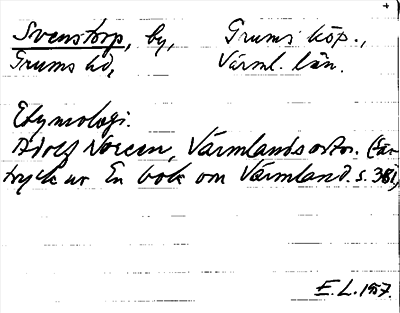 Svenstorp, by, Grums köp.,
Grums hd, Värml. län.
Etymologi.
Adolf Noreen, Värmlandsortn. (Sär-
tryck ur En bok om Värmland. s. 381)
E. L. 1957.